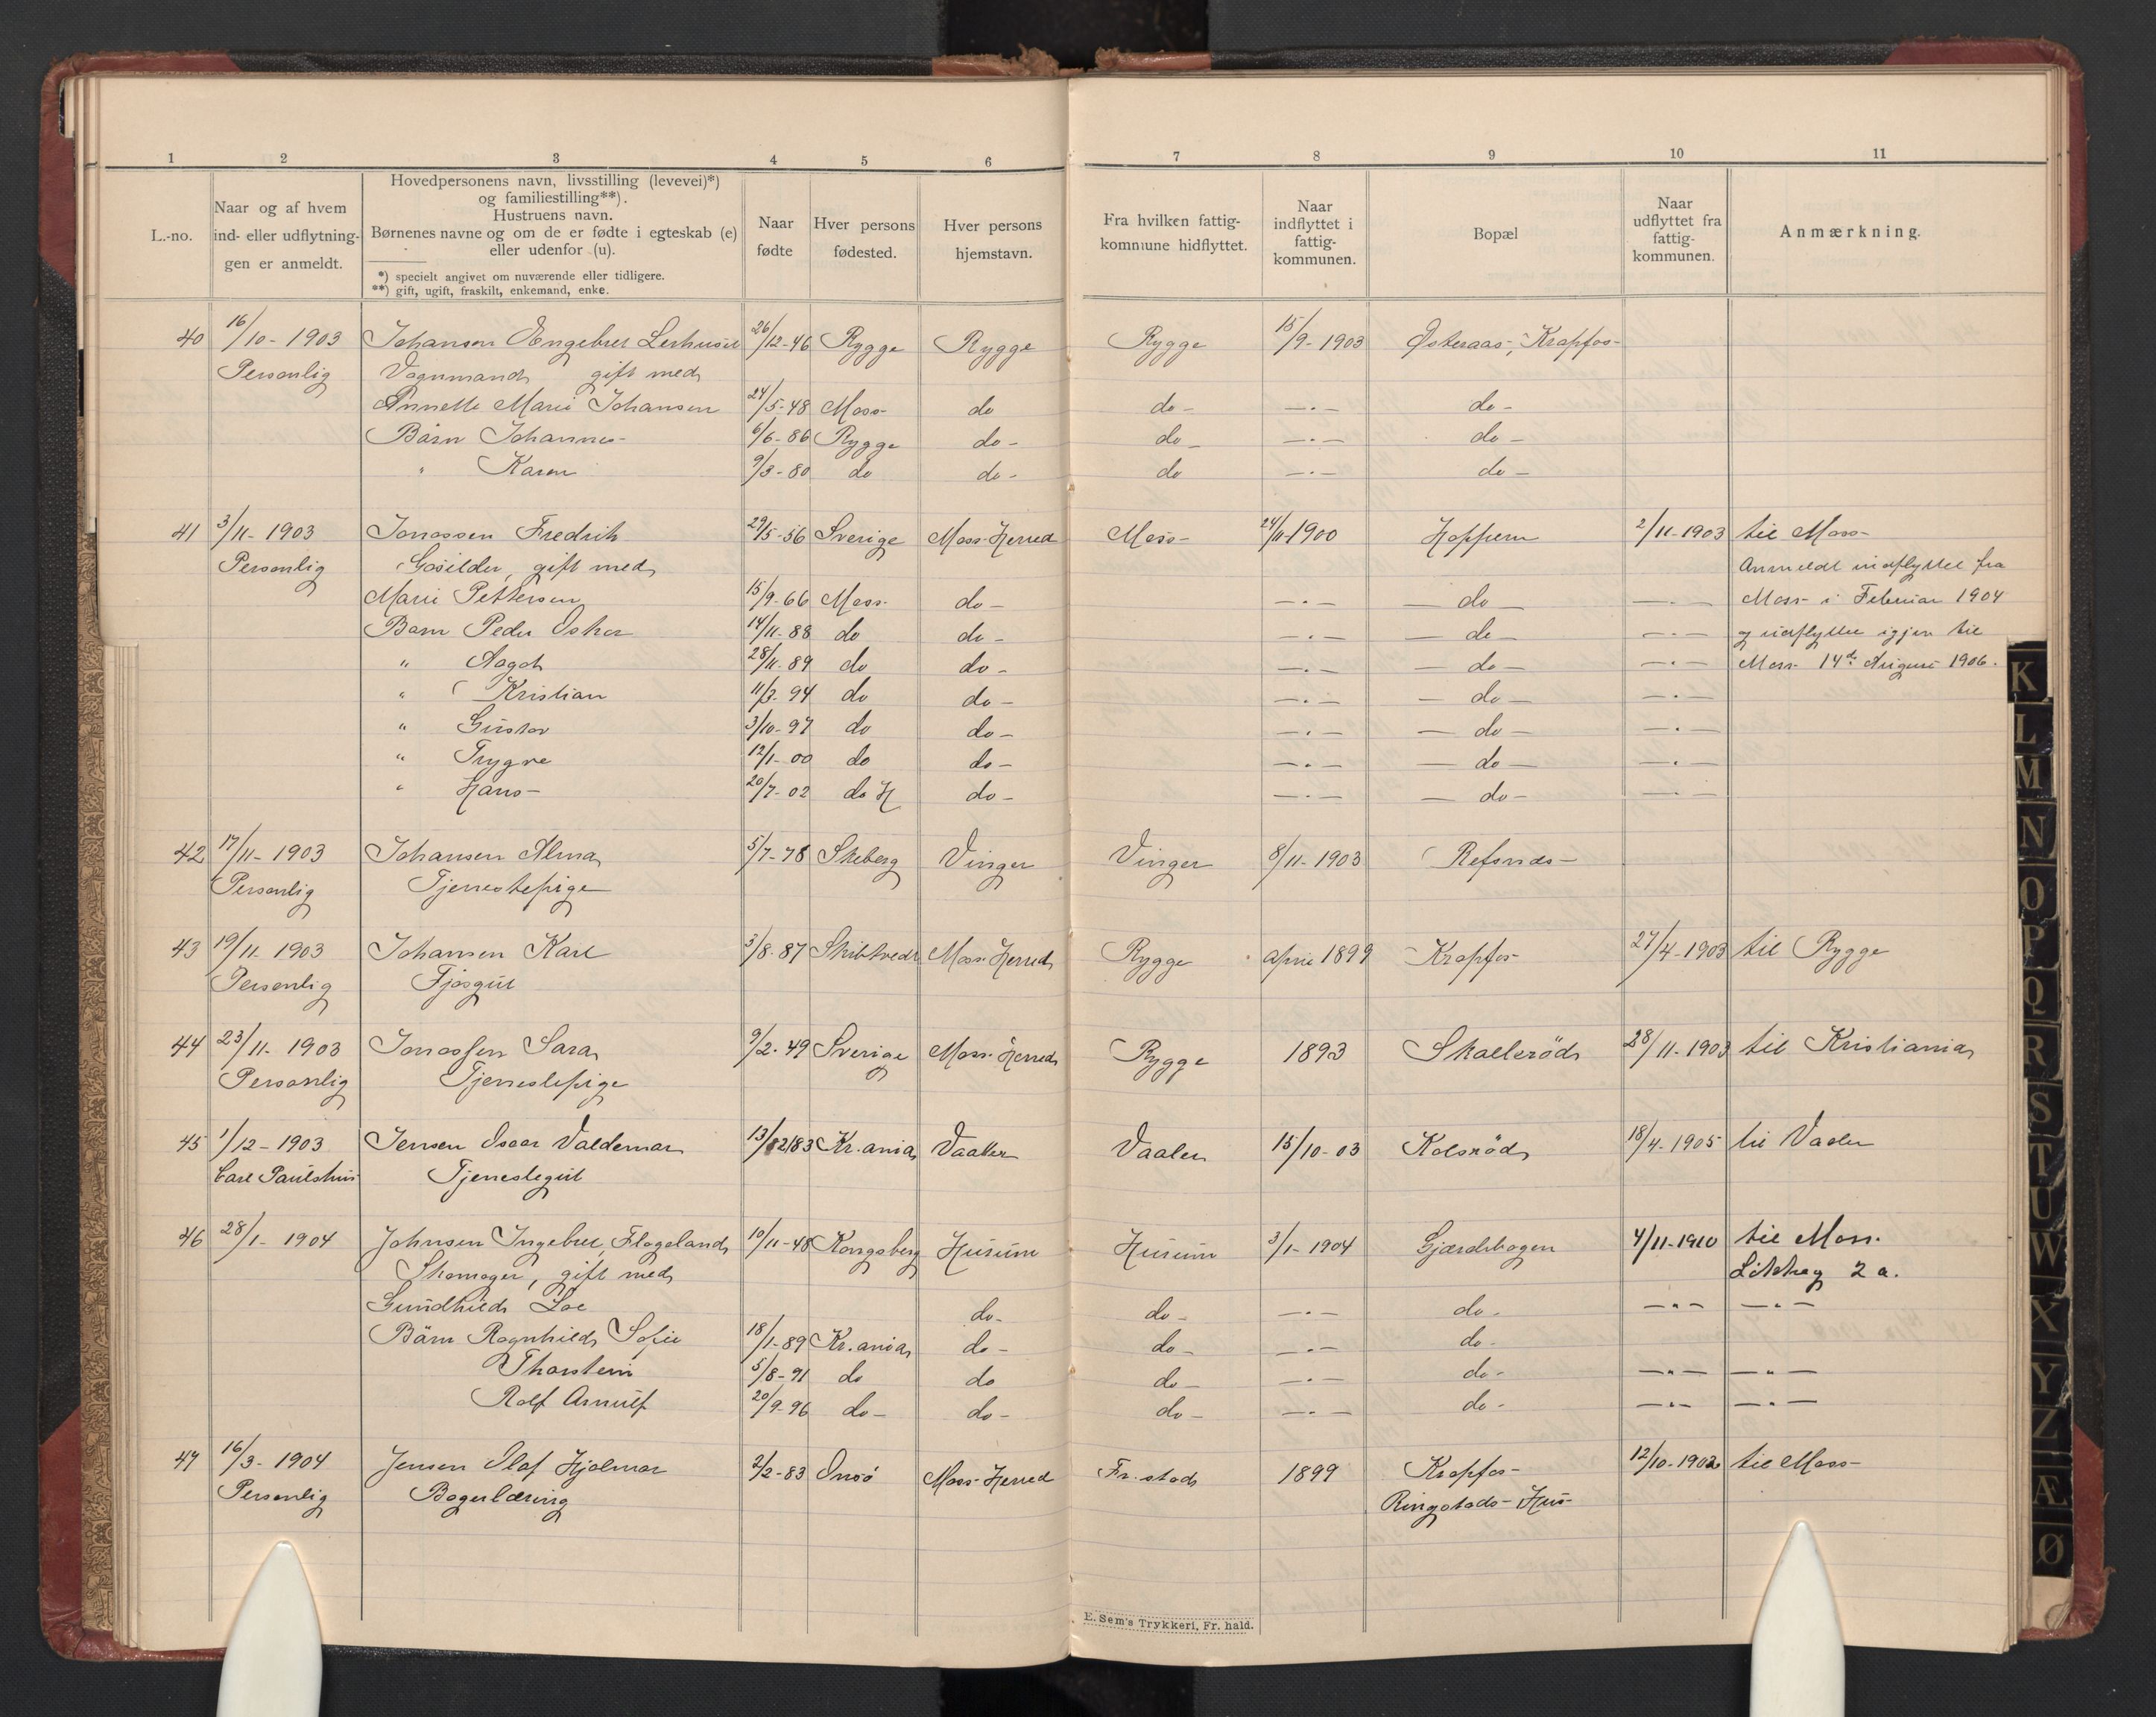 1 2 3 4 5 6 7 8 9 10 11
L.-no.
Naar og af hvem
ind- eller udflytnin-
gen er anmeldt.
Hovedpersonens navn, livsstilling (levevei)*)
og familiestilling**).
Hustruens navn.
Børnenes navne og om de er fødte i egteskab (e)
eller udenfor (u).
*) specielt angivet om nuværende eller tidligere.
**) gift, ugift, fraskilt, enkemand, enke.
Naar
fødte
Hver persons
fødested.
Hver persons
hjemstavn.
Fra hvilken fattig-
kommune hidflyttet.
Naar
indflyttet i
fattig-
kommunen.
Bopæl
Naar
udflyttet fra
fattig-
kommunen.
Anmærkning.
40 16/10-1903 Johansen Engebret Lerhuset 26/12-46 Rygge Rygge Rygge 15/9-1903 Østeraas, Krapfos-
Personlig Vognmand gift med
Annette Marie Johansen 24/5-48 Moss- do do- —.— do-
Børn Johannes- 6/6-86 Rygge do- do- —.— do-
" Karen 9/3-80 do do- do —.— do-
41 3/11-1903 Jonassen Fredrik 29/5-56 Sverige Moss-Herred Moss- 24/11-1900 Hoppern 2/11-1903 til Moss-
Personlig gift med Anmeldt indflyttet fra
Marie Pettersen 15/9-66 Moss- do- —.— —do— —.— Moss- i Februar 1904
Børn Peder Oskar 14/11-88 do do- —.— —do— —.— og udflyttet igjen til
" Aagot 28/11-89 do do- —.— —do— —.— Moss- 14de August 1906.
" Kristian 11/7-94 do do- —.— —do— —.—
" Gustav 3/10-97 do do- —.— —do— —.—
" Trygve 12/1-00 do do- —.— —do— —.—
" Hans- 20/7-02 do H do- —.— —do- —.—
42 17/11-1903 Johansen Alma 5/7-78 Skeberg Vinger Vinger 8/11-1903 Refsnes-
Personlig Tjenestepige
43 19/11-1903 Johansen Karl 3/8-87 Skibtvedt Moss-Herred Rygge April 1899 Krapfos- 27/4-1903 til Rygge
Personlig Fjøsgut
44 23/11-1903 Jonassen Sara 9/2-49 Sverige Moss-Herred Rygge 1893 Skallerød 28/11-1903 til Kristiania
Personlig Tjenestepige
45 1/12-1903 Jensen Oscar Valdemar 13/12 83 Kr.ania Vaaler Vaaler 15/10-03 Kolsrød 18/4-1905 til Vaaler
Carl Paulshus Tjenestegut
46 28/1-1904 Johnsen Ingebret, Flageland 10/11-48 Kongsberg Hurum Hurum 3/1-1904 Gjærdebogen 4/11-1910 til Moss.
Skomager, gift med 2 a.
Gundhild Loe do- do- —.— do- —.— —.—
Børn Ragnhild Sofie 18/1-89 Kr.ania do- do- —.— do-
Thorstein 5/8-91 do do do- —.— do- —.— —.—
Rolf Arnulf 20/9-96 do- do- do- —.— do- —.— —.—
47 16/3-1904 Jensen Olaf Hjalmar 2/2-83 Onsø Moss-Herred Fr.stad 1899 Krapfos- 12/10-1902 til Moss-
Personlig Bagerlæring Ringstads-Hus-
E. Sem's Trykkeri, Fr. hald.
K
L
M
N
O
P
Q
R
S
T
U
W
X
Y
Z
Æ
Ø